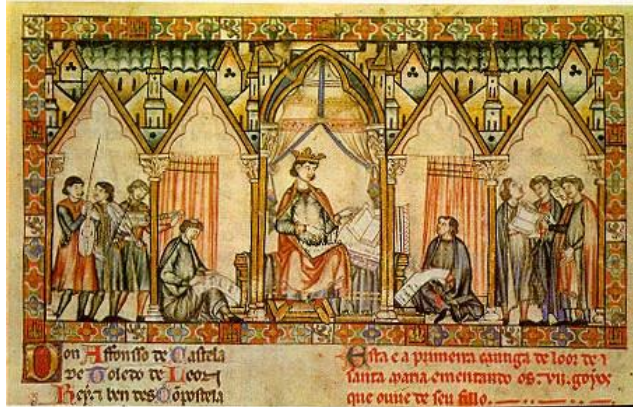 Don Affonsso de Castela
de Toledo de Leon
Rey e ben des Cõpostela
Esta e a primeira cantiga de loor de
santa maria ementando os .vii. goyos
que ouve de seu fillo.